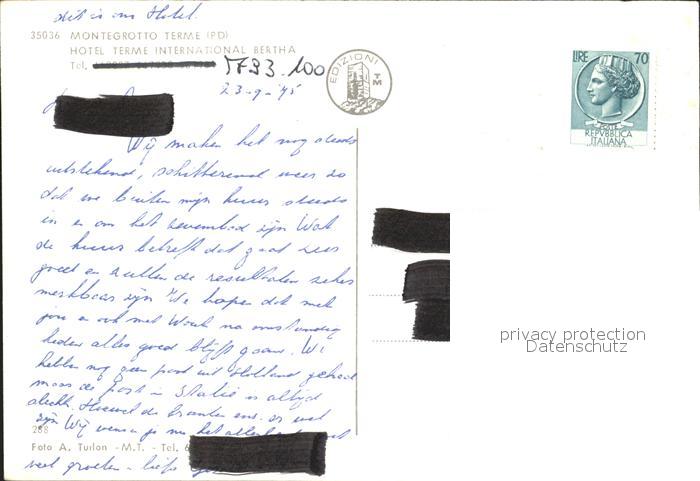 dit is ons Hotel.
35036 MONTEGROTTO TERME (PD)
HOTEL TERME INTERNATIONAL BERTHA
Tel. 793.100
EDIZIONI TM
23-9-'75
LIRE 70
POSTE
REPVBBLICA
ITALIANA
Wij maken het nog steeds
uitstekend, schitterend weer zo
dat we buiten mijn kuur steeds
in en om het zwembad zijn Wat
de kuur betreft dat gaat zeer
goed en zullen de resultaten zeker
merkbaar zijn We hopen dat met
jou en ook met na omstandig
heden alles goed blijft gaan. We
hebben nog geen post uit Holland gehad
maar de post in Italie is altijd
slecht. Hoewel de kranten er wel
zijn Wij wensen je
288
Foto A. Turlon - M.T. - Tel. 6
veel groeten - liefs
privacy protection
Datenschutz